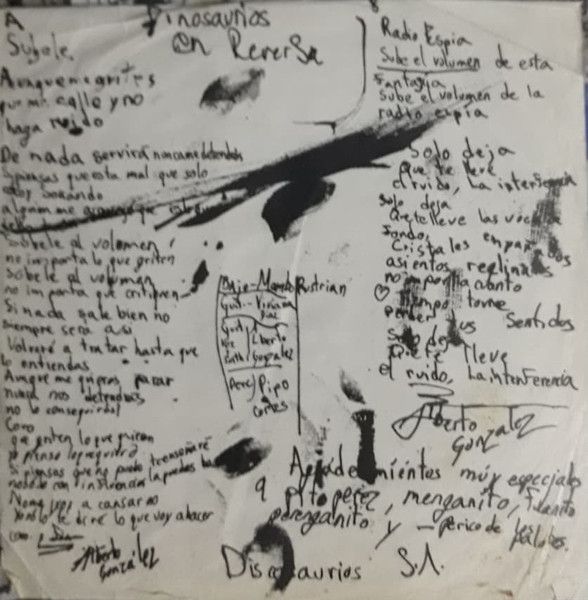 A
Dinosaurios
en Reversa
Súbele
Aunque me grites
que me calle y no
haga ruido
De nada servirá nunca me detendrás
Si piensas que esta mal que solo
estoy sonando
Súbele al volumen
no importa lo que griten
Súbele al volumen
no importa que critiquen
Si nada sale bien no
siempre sera asi
Volveré a tratar hasta que
lo entiendas
Aunque me quieras parar
nunca nos detendras
no lo conseguiras!
Coro
ya griten lo que quieran
Si piensas que no puedo
a cansar no
te dire lo que voy a hacer
Alberto
González
Radio Espia
Sube el volumen de esta
Fantasia
Sube el volumen de la
radio espia
Solo deja
Que te lleve
el ruido, La interferencia
Solo deja
Que te lleve las voces
Fondo,
Cristales empañados
asientos reclinados
no importa cuanto
tiempo tome
perder tus Sentidos
Solo deja
Que te lleve
el ruido, La interferencia
Alberto
González
Bajo - Rustrian
Guit - Viviana
Diaz
Guit
Alberto
González
Perc / Pipo
Cortes
Agradecimientos muy especiales
a pito perez, menganito, fulanito
perenganito y - perico de los
palotes.
Discosaurios S.A.